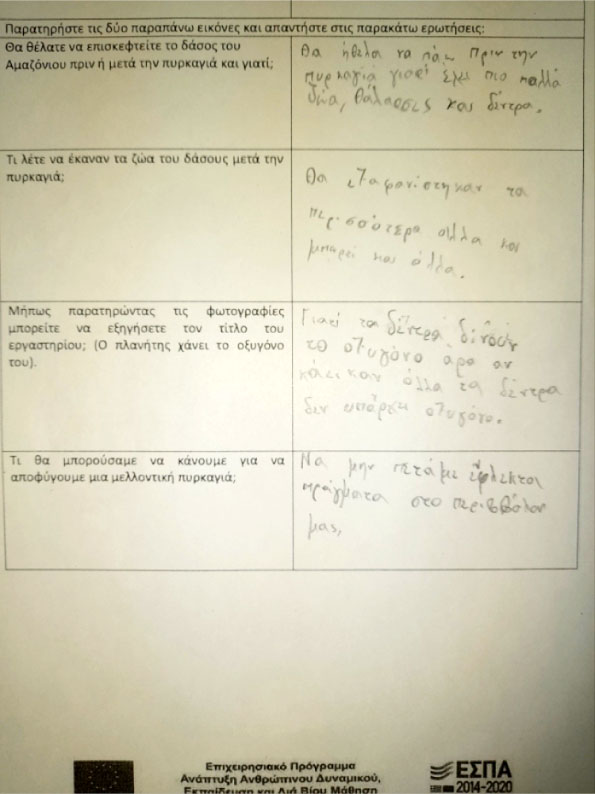 Παρατηρήστε τις δύο παραπάνω εικόνες και απαντήστε στις παρακάτω ερωτήσεις:
Θα θέλατε να επισκεφτείτε το δάσος του
Αμαζόνιου πριν ή μετά την πυρκαγιά και γιατί;
Θα ήθελα να πάω πριν την
πυρκαγιά γιατί έχει πιο πολλά
ζώα, θάλασσες και δέντρα.
Τι λέτε να έκαναν τα ζώα του δάσους μετά την
πυρκαγιά;
Θα εξαφανίστηκαν τα
περισσότερα αλλα και
μπορεί και όλλα.
Μήπως παρατηρώντας τις φωτογραφίες
μπορείτε να εξηγήσετε τον τίτλο του
εργαστηρίου; (Ο πλανήτης χάνει το οξυγόνο
του).
Γιατί τα δέντρα δίνουν
το οξυγόνο αρα αν
κάει καν όλλα τα δέντρα
δεν υπάρχει οξυγόνο.
Τι θα μπορούσαμε να κάνουμε για να
αποφύγουμε μια μελλοντική πυρκαγιά;
Να μην πετάμε έφλεκτα
πράγματα στο
μας,
Επιχειρησιακό Πρόγραμμα
Ανάπτυξη Ανθρώπινου Δυναμικού,
Εκπαίδευση και Διά Βίου Μάθηση
ΕΣΠΑ
2014-2020